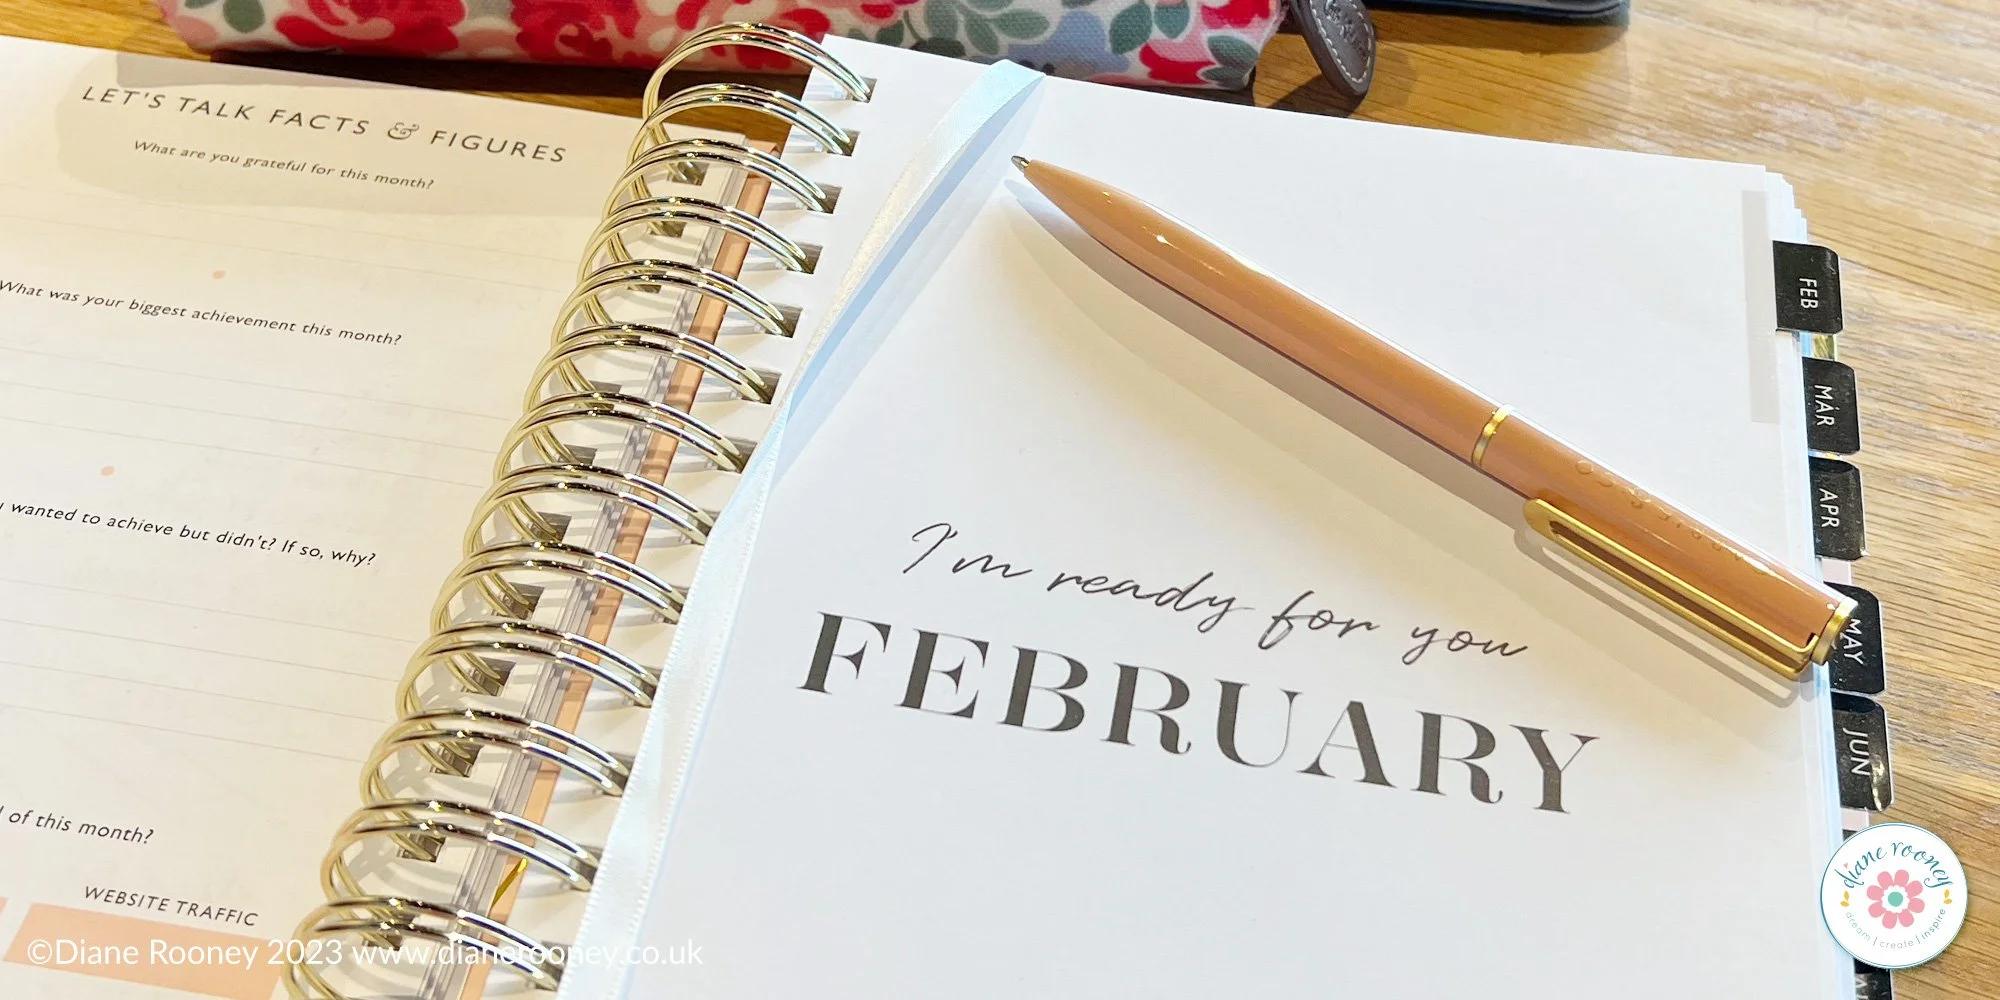 LET'S TALK FACTS & FIGURES
What are you grateful for this month?
What was your biggest achievement this month?
wanted to achieve but didn't? If so, why?
of this month?
WEBSITE TRAFFIC
I'm ready for you
FEBRUARY
FEB
MAR
APR
MAY
JUN
diane rooney
dream | create | inspire
©Diane Rooney 2023 www.dianerooney.co.uk